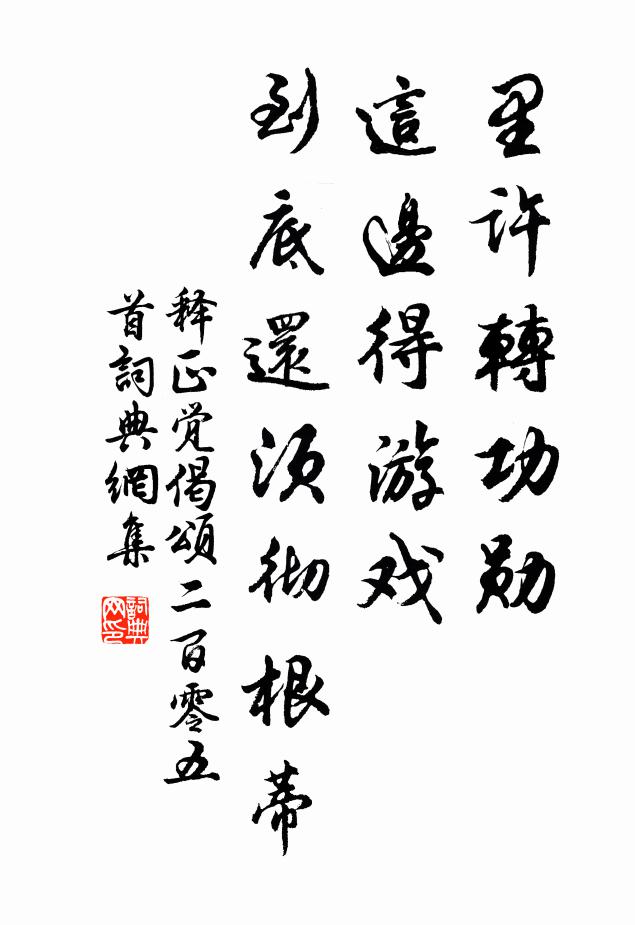 里許轉功勋
這邊得游戏
到底還须彻根蒂
释正觉偈頌二百零五
首詞典網集
詞典
网印